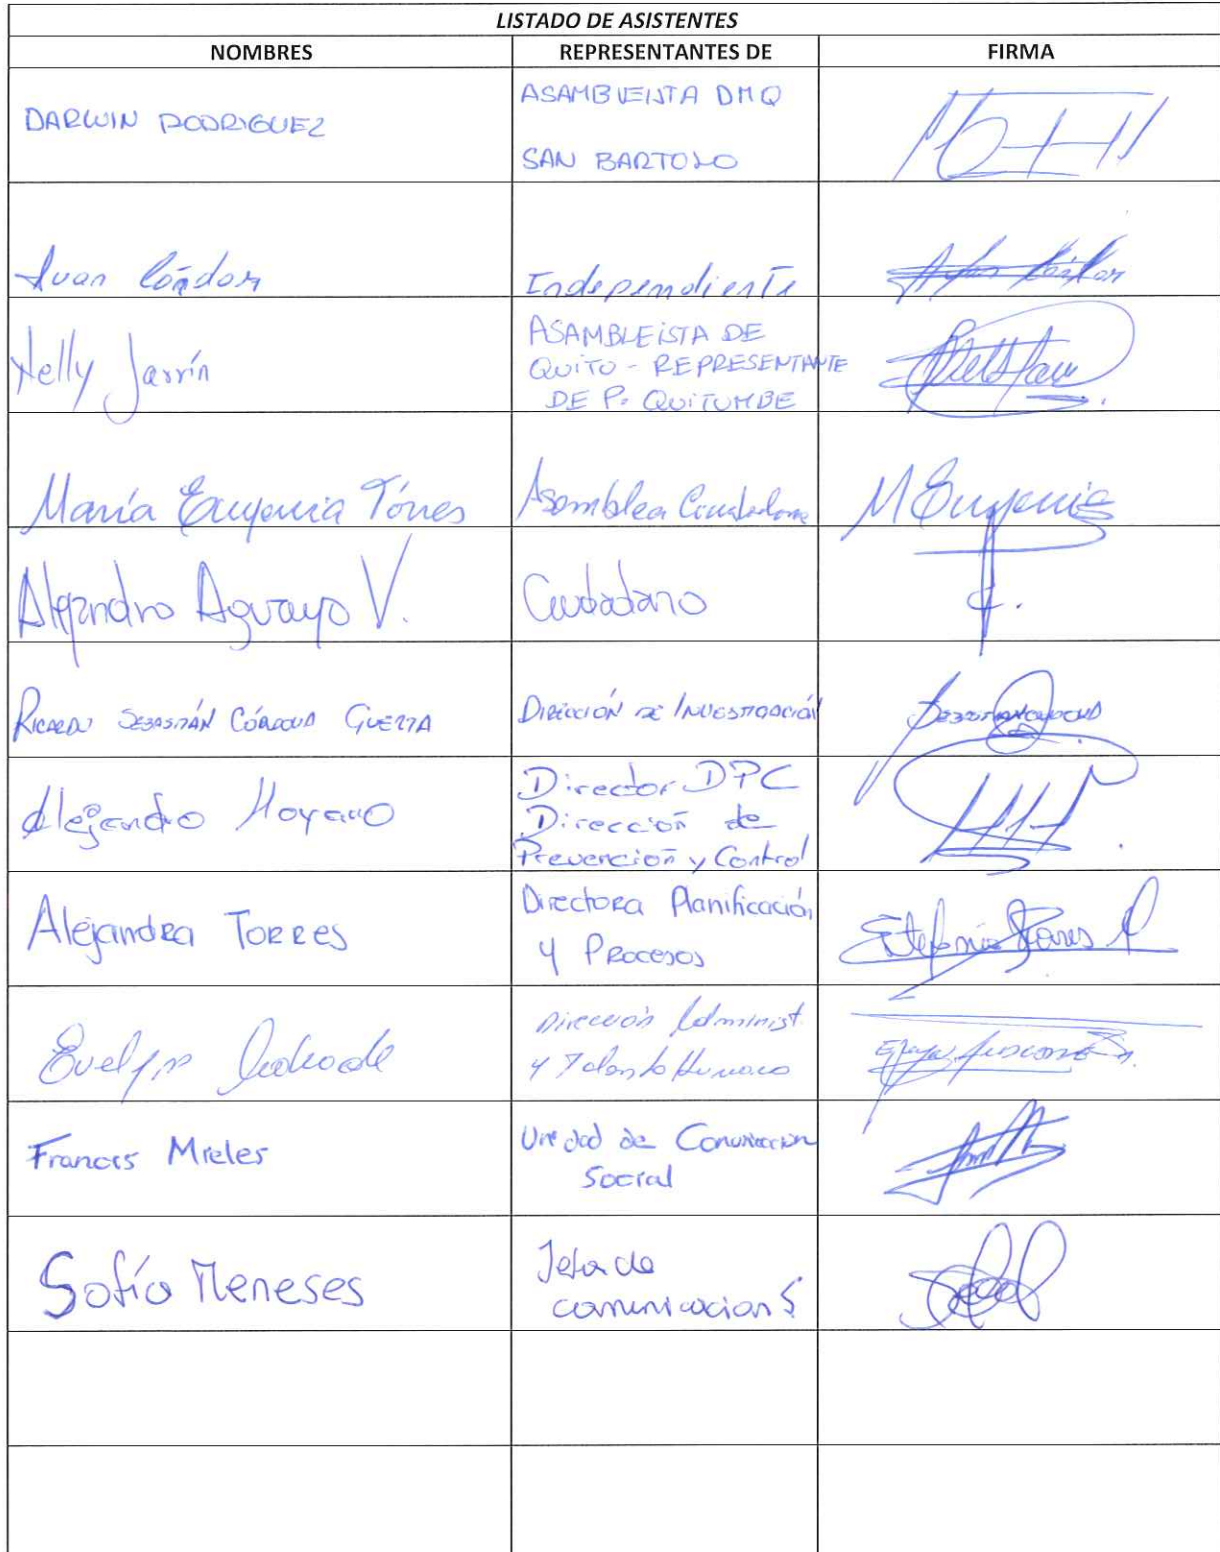 LISTADO DE ASISTENTES
NOMBRES REPRESENTANTES DE FIRMA
DARWIN RODRIGUEZ
ASAMBLEISTA DMQ
SAN BARTOLO
Juan Cóndor
Independiente
Nelly Jarrín
ASAMBLEISTA DE
QUITO - REPRESENTANTE
DE P. QUITUMBE
María Eugenia Tórres
Asamblea Ciudadana
M Eugenia
Alejandro Aguayo V.
Ciudadano
RICARDO SEBASTIÁN CÓRDOVA GUERRA
DIRECCIÓN DE INVESTIGACIÓN
Alejandro Moyano
Director DPC
Dirección de
Prevención y Control
Alejandra TORRES
Directora Planificación
y PROCESOS
Estefanía Torres
Evelyn Andrade
Dirección Administ.
y Talento Humano
Francis Mieles
Unidad de Comunicación
Social
Sofía Meneses
Jefa de
comunicacion S